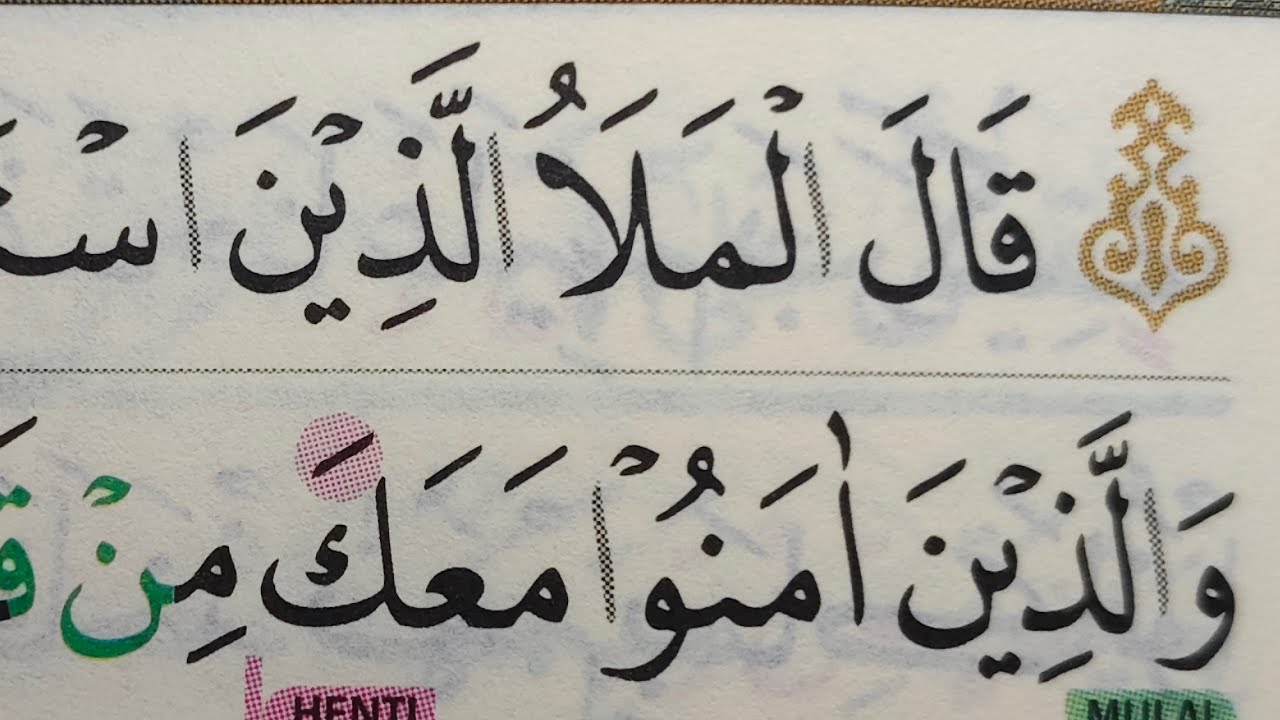 قَالَ الْمَلَاُ الَّذِيْنَ اسْ
وَالَّذِيْنَ اٰمَنُوْا مَعَكَ مِنْ قَ
HENTI MULAI